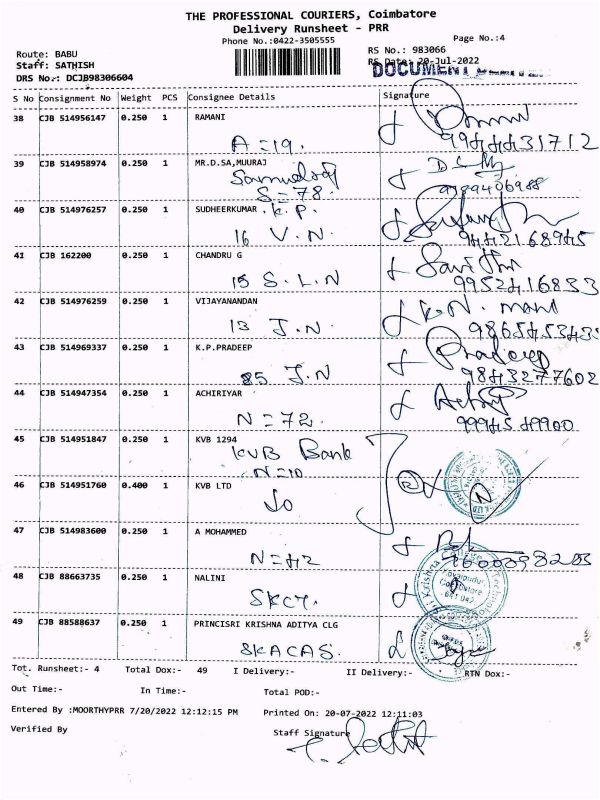 THE PROFESSIONAL COURIERS, Coimbatore
Delivery Runsheet - PRR
Phone No.:0422-3505555
Page No.:4
Route: BABU
RS No.: 983066
Staff: SATHISH
RS Date: 20-Jul-2022
DRS No.: DCJB98306604
DOCUMENT
S No Consignment No Weight PCS Consignee Details Signature
38 CJB 514956147 0.250 1 RAMANI
A = 19.
9944431712
39 CJB 514958974 0.250 1 MR.D.SA,MUURAJ
S = 78
9789406988
40 CJB 514976257 0.250 1 SUDHEERKUMAR . K. P.
16 V. N.
9442168945
41 CJB 162200 0.250 1 CHANDRU G
15 S. L. N
Savithri
9952416833
42 CJB 514976259 0.250 1 VIJAYANANDAN
13 J. N.
K. N. mani
43 CJB 514969337 0.250 1 K.P.PRADEEP
85 J. N
Pradeep
9843277602
44 CJB 514947354 0.250 1 ACHIRIYAR
N = 72.
9994549900
45 CJB 514951847 0.250 1 KVB 1294
KVB Bank
N = 10
46 CJB 514951760 0.400 1 KVB LTD
47 CJB 514983600 0.250 1 A MOHAMMED
N = 42
48 CJB 88663735 0.250 1 NALINI
SKCT.
Coimbatore
49 CJB 88588637 0.250 1 PRINCISRI KRISHNA ADITYA CLG
SKACAS.
Tot. Runsheet:- 4 Total Dox:- 49 I Delivery:- II Delivery:- RTN Dox:-
Out Time:- In Time:- Total POD:-
Entered By :MOORTHYPRR 7/20/2022 12:12:15 PM Printed On: 20-07-2022 12:11:03
Verified By Staff Signature